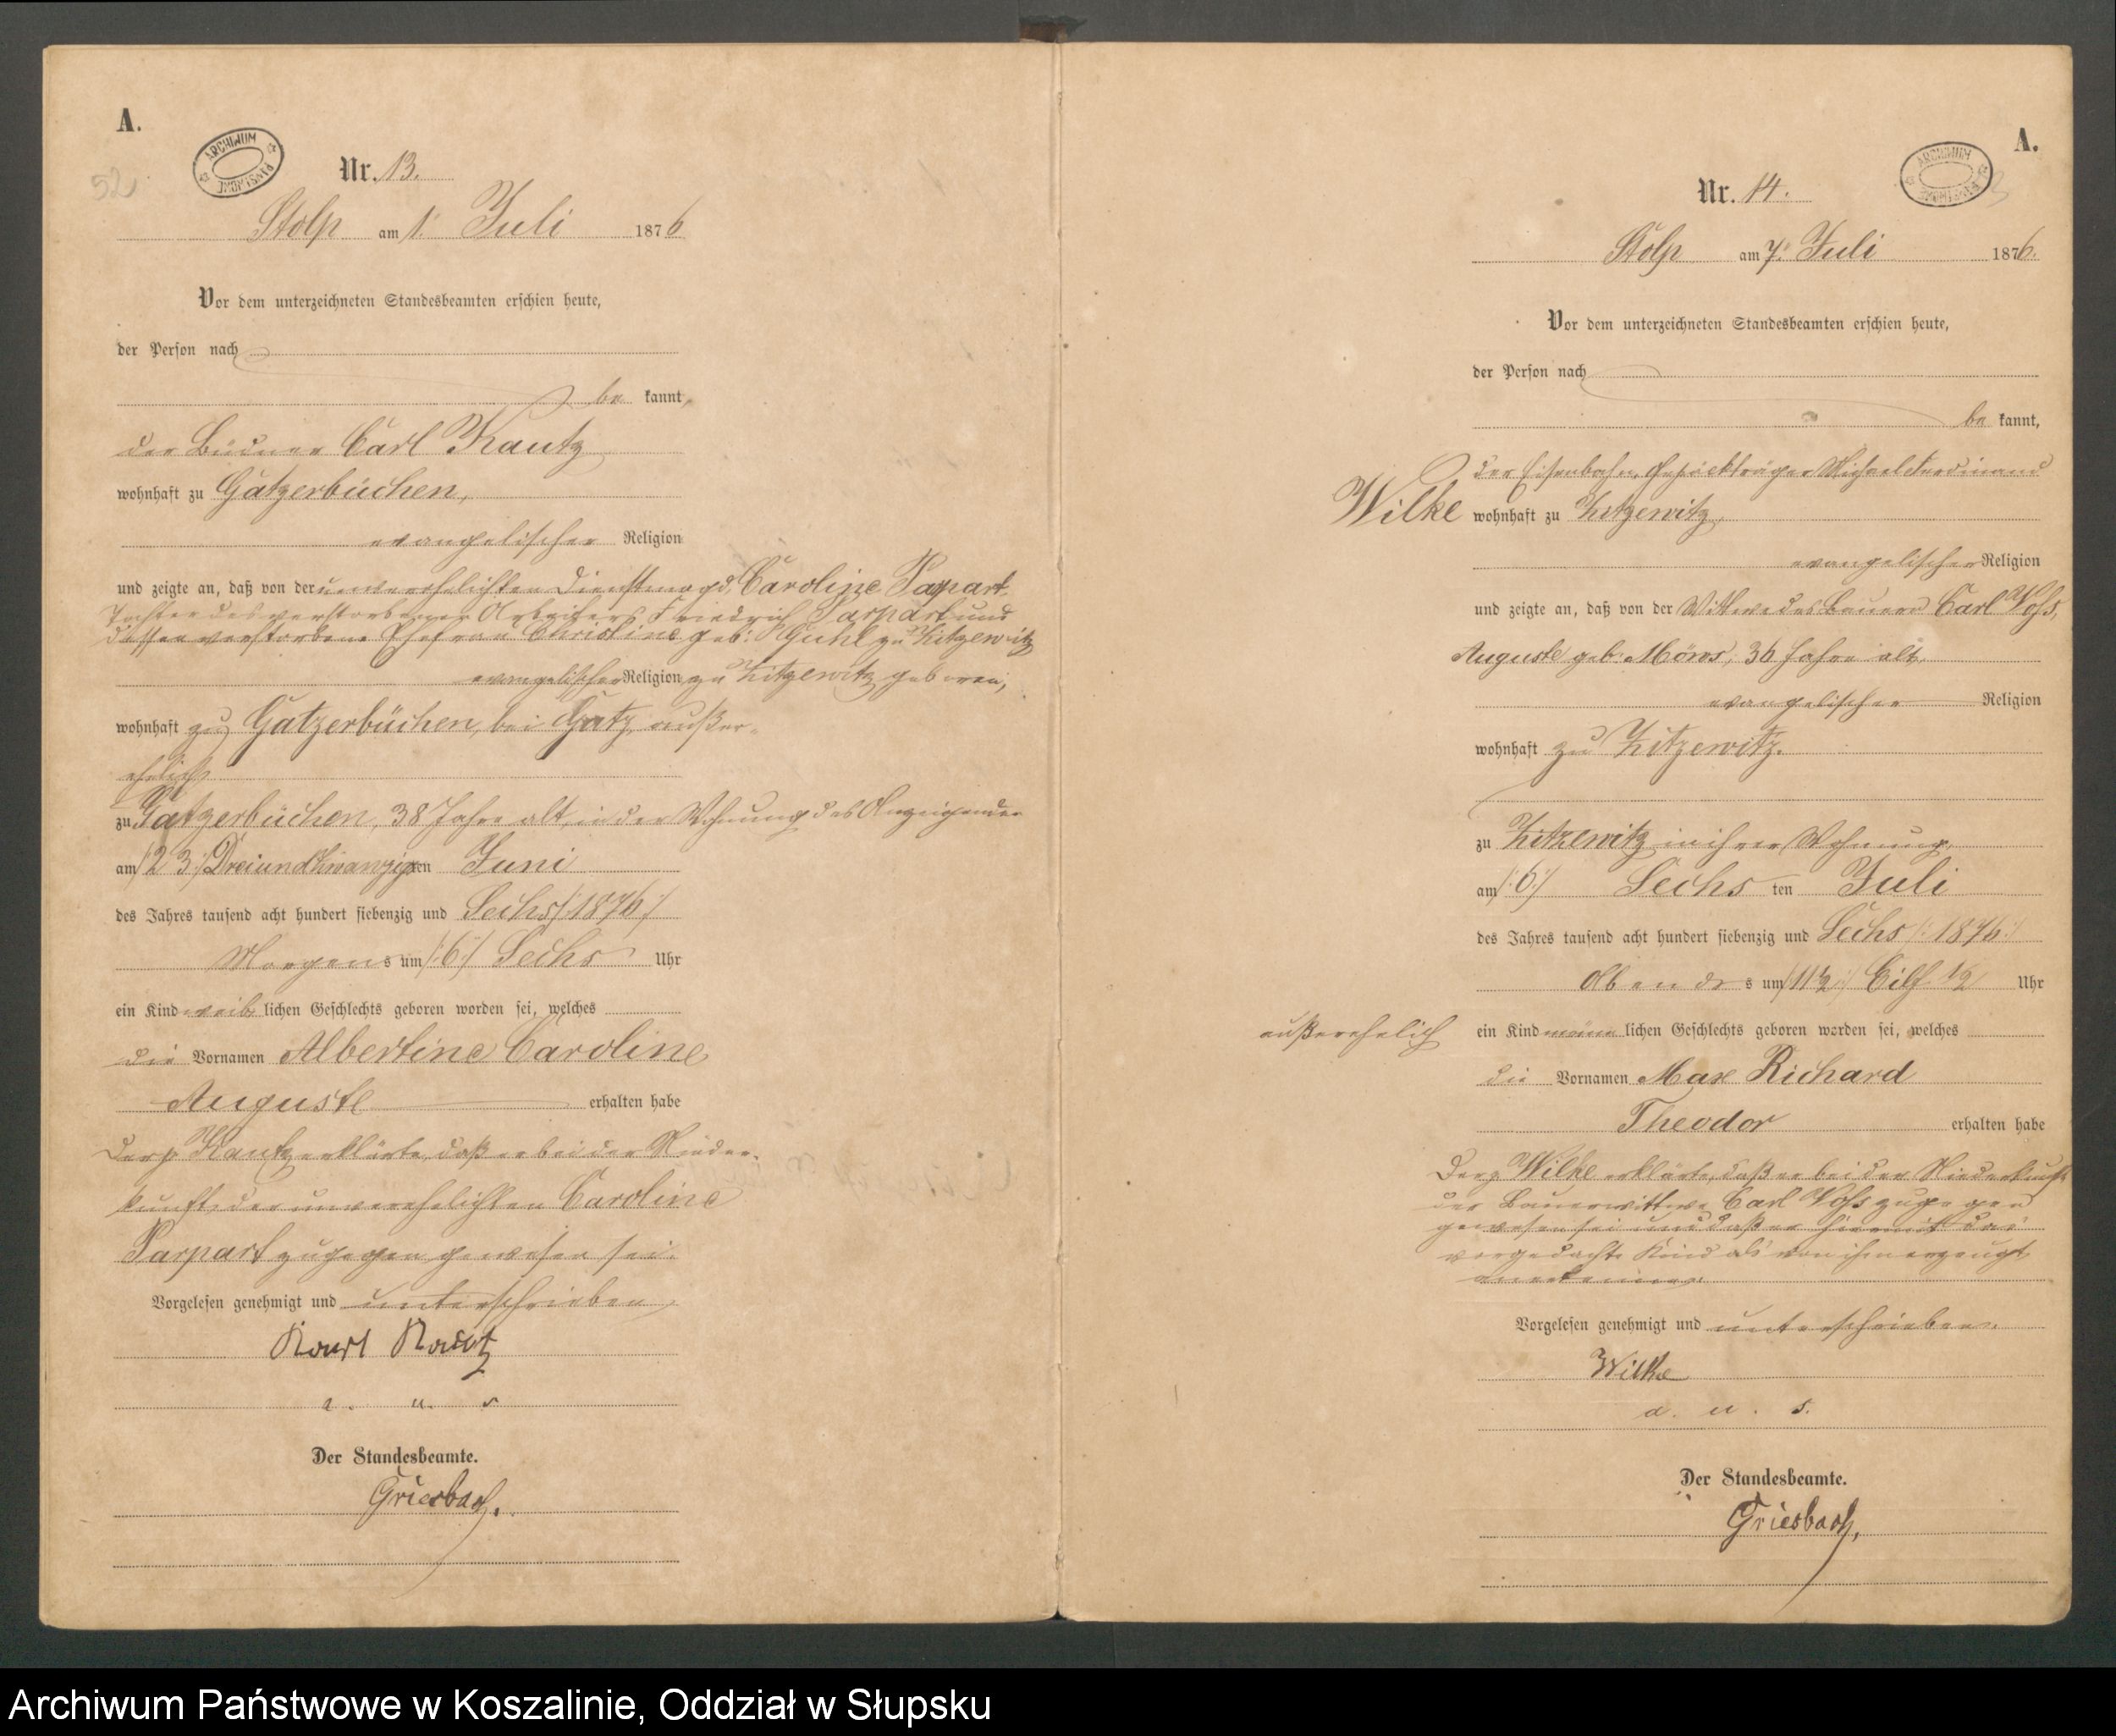 A.
52
ARCHIWUM PAŃSTWOWE
Nr. 13.
Stolp am 1. Juli 1876
Vor dem unterzeichneten Standesbeamten erschien heute,
der Person nach
be kannt,
der Büdner Carl Kautz
wohnhaft zu Gatzerbüchen,
evangelischer Religion
und zeigte an, daß von der unverehelichten Dienstmagd Caroline Parpart
Tochter des verstorbenen Arbeiters Friedrich Parpart und
dessen verstorbene Ehefrau Christine geb: Guhl zu Zitzewitz
evangelischer Religion zu Zitzewitz geboren,
wohnhaft zu Gatzerbüchen, bei Gatz, außer-
ehelich
zu Gatzerbüchen, 38 Jahre alt, in der Wohnung des Anzeigenden
am /:23:/ Dreiundzwanzigsten Juni
des Jahres tausend acht hundert siebenzig und Sechs /:1876:/
Morgens um /:6:/ Sechs Uhr
ein Kind weib lichen Geschlechts geboren worden sei, welches
die Vornamen Albertine Caroline
Auguste erhalten habe
Der p. Kautz erklärte, daß er bei der Nieder-
kunft der unverehelichten Caroline
Parpart zugegen gewesen sei.
Vorgelesen genehmigt und unterschrieben
Karl Kautz
a. u. s
Der Standesbeamte.
Griesbach.
A.
ARCHIWUM PAŃSTWOWE
Nr. 14.
Stolp am 7. Juli 1876.
Vor dem unterzeichneten Standesbeamten erschien heute,
der Person nach
be kannt,
der Eisenbahn-Gepäckträger Michael Ferdinand
Wilke wohnhaft zu Zitzewitz,
evangelischer Religion
und zeigte an, daß von der Wittwe des Bauern Carl Voß,
Auguste geb. 36 Jahre alt,
evangelischer Religion
wohnhaft zu Zitzewitz.
zu Zitzewitz in ihrer Wohnung,
am /:6:/ Sechs ten Juli
des Jahres tausend acht hundert siebenzig und Sechs /:1876:/
Abends um /:11½:/ Eilf ½ Uhr
außerehelich ein Kind männ lichen Geschlechts geboren worden sei, welches
die Vornamen Max Richard
Theodor erhalten habe
Der p. Wilke erklärte, daß er bei der Niederkunft
der Bauerwittwe Carl Voß zugegen
gewesen sei und daß er hiermit das
vorgedachte Kind als von ihm erzeugt
anerkenne.
Vorgelesen genehmigt und unterschrieben.
Wilke
a. u. s.
Der Standesbeamte.
Griesbach,
Archiwum Państwowe w Koszalinie, Oddział w Słupsku